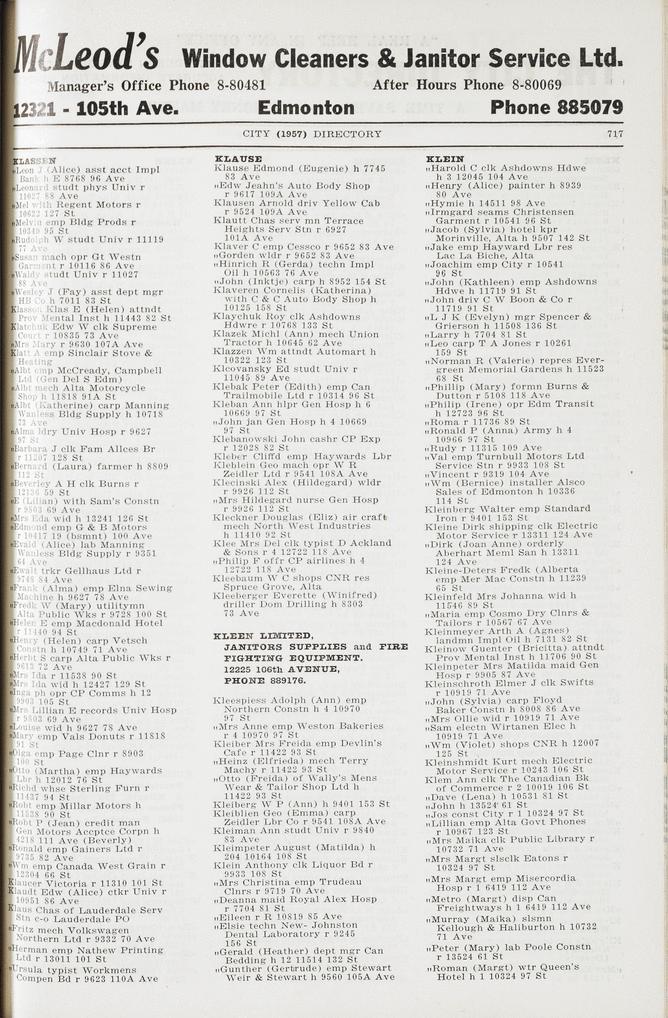 McLeod's Window Cleaners & Janitor Service Ltd.
Manager's Office Phone 8-80481 After Hours Phone 8-80069
12321 - 105th Ave. Edmonton Phone 885079
CITY (1957) DIRECTORY 717
KLASSEN
„Leon J (Alice) asst acct Impl
Bank h E 8768 96 Ave
„Leonard studt phys Univ r
11027 88 Ave
„Mel with Regent Motors r
10622 127 St
„Melvin emp Bldg Prods r
10349 95 St
„Rudolph W studt Univ r 11119
77 Ave
„Susan mach opr Gt Westn
Garment r 10116 86 Ave
„Waldy studt Univ r 11027
88 Ave
„Wesley J (Fay) asst dept mgr
HB Co h 7011 83 St
Klassen Klas E (Helen) attndt
Prov Mental Inst h 11443 82 St
Klatchuk Edw W clk Supreme
Court r 10835 73 Ave
„Mrs Mary r 9630 107A Ave
Klatt A emp Sinclair Stove &
Heating
„Albt emp McCready, Campbell
Ltd (Gen Del S Edm)
„Albt mech Alta Motorcycle
Shop h 11818 91A St
„Albt (Katherine) carp Manning
Wanless Bldg Supply h 10718
73 Ave
„Alma ldry Univ Hosp r 9627
97 St
„Barbara J clk Fam Allces Br
r 11207 128 St
„Bernard (Laura) farmer h 8809
112 St
„Beverley A H clk Burns r
12136 59 St
„E (Lilian) with Sam's Constn
r 9503 69 Ave
„Mrs Eda wid h 13241 126 St
„Edmond emp G & B Motors
r 10417 19 (bsmnt) 100 Ave
„Evald (Alice) lab Manning
Wanless Bldg Supply r 9351
64 Ave
„Ewalt trkr Gellhaus Ltd r
9749 84 Ave
„Frank (Alma) emp Elna Sewing
Machine h 9627 78 Ave
„Fredk W (Mary) utilitymn
Alta Public Wks r 9728 100 St
„Helen E emp Macdonald Hotel
r 11440 94 St
„Henry (Helen) carp Vetsch
Constn h 10749 71 Ave
„Herbt S carp Alta Public Wks r
9613 72 Ave
„Mrs Ida r 11538 90 St
„Mrs Ida wid h 12427 129 St
„Inga ph opr CP Comms h 12
9903 105 St
„Mrs Lillian E records Univ Hosp
r 9503 69 Ave
„Louise wid h 9627 78 Ave
„Mary emp Vals Donuts r 11818
91 St
„Olga emp Page Clnr r 8903
100 St
„Otto (Martha) emp Haywards
Lbr h 12012 76 St
„Richd whse Sterling Furn r
11437 94 St
„Robt emp Millar Motors h
11538 90 St
„Robt P (Jean) credit man
Gen Motors Accptce Corpn h
4218 111 Ave (Beverly)
„Ronald emp Gainers Ltd r
9735 82 Ave
„Wm emp Canada West Grain r
12304 66 St
Klaucer Victoria r 11310 101 St
Klaudt Edw (Alice) ctkr Univ r
10951 86 Ave
Klaus Chas of Lauderdale Serv
Stn c-o Lauderdale PO
„Fritz mech Volkswagen
Northern Ltd r 9332 70 Ave
„Herman emp Nathew Printing
Ltd r 13011 101 St
„Ursula typist Workmens
Compen Bd r 9623 110A Ave
KLAUSE
Klause Edmond (Eugenie) h 7745
83 Ave
„Edw Jeahn's Auto Body Shop
r 9617 109A Ave
Klausen Arnold driv Yellow Cab
r 9524 109A Ave
Klautt Chas serv mn Terrace
Heights Serv Stn r 6927
101A Ave
Klaver C emp Cessco r 9652 83 Ave
„Gordon wldr r 9652 83 Ave
„Hinrich R (Gerda) techn Impl
Oil h 10563 76 Ave
„John (Inktje) carp h 8952 154 St
Klaveren Cornelis (Katherina)
with C & C Auto Body Shop h
10125 158 St
Klaychuk Roy clk Ashdowns
Hdwre r 10768 133 St
Klazek Michl (Ann) mech Union
Tractor h 10645 62 Ave
Klazzen Wm attndt Automart h
10322 123 St
Klcovansky Ed studt Univ r
11045 89 Ave
Klebak Peter (Edith) emp Can
Trailmobile Ltd r 10314 96 St
Kleban Ann hlpr Gen Hosp h 6
10669 97 St
„John jan Gen Hosp h 4 10669
97 St
Klebanowski John cashr CP Exp
r 12028 82 St
Kleber Cliffd emp Haywards Lbr
Klebleln Geo mach opr W R
Zeidler Ltd r 9541 108A Ave
Klecinski Alex (Hildegard) wldr
r 9926 112 St
„Mrs Hildegard nurse Gen Hosp
r 9926 112 St
Kleckner Douglas (Eliz) air craft
mech North West Industries
h 11410 92 St
Klee Mrs Del clk typist D Ackland
& Sons r 4 12722 118 Ave
„Philip F offr CP airlines h 4
12722 118 Ave
Kleebaum W C shops CNR res
Spruce Grove, Alta
Kleeberger Everette (Winifred)
driller Dom Drilling h 8303
73 Ave
KLEEN LIMITED,
JANITORS SUPPLIES and FIRE
FIGHTING EQUIPMENT.
12225 106th AVENUE,
PHONE 889176.
Kleespiess Adolph (Ann) emp
Northern Constn h 4 10970
97 St
„Mrs Anne emp Weston Bakeries
r 4 10970 97 St
Kleiber Mrs Freida emp Devlin's
Cafe r 11422 93 St
„Heinz (Elfrieda) mech Terry
Machy r 11422 93 St
„Otto (Freida) of Wally's Mens
Wear & Tailor Shop Ltd h
11422 93 St
Kleiberg W P (Ann) h 9401 153 St
Kleiblien Geo (Emma) carp
Zeidler Lbr Co r 9541 108A Ave
Kleiman Ann studt Univ r 9840
83 Ave
Kleimpeter August (Matilda) h
204 10164 108 St
Klein Anthony clk Liquor Bd r
9933 108 St
„Mrs Christina emp Trudeau
Clnrs r 9719 70 Ave
„Deanna maid Royal Alex Hosp
r 7704 81 St
„Eileen r R 10819 85 Ave
„Elsie techn New- Johnston
Dental Laboratory r 9245
156 St
„Gerald (Heather) dept mgr Can
Bedding h 12 11514 132 St
„Gunther (Gertrude) emp Stewart
Weir & Stewart h 9560 105A Ave
KLEIN
„Harold C clk Ashdowns Hdwe
h 3 12045 104 Ave
„Henry (Alice) painter h 8939
80 Ave
„Hymie h 14511 98 Ave
„Irmgard seams Christensen
Garment r 10541 96 St
„Jacob (Sylvia) hotel kpr
Morinville, Alta h 9507 142 St
„Jake emp Hayward Lbr res
Lac La Biche, Alta
„Joachim emp City r 10541
96 St
„John (Kathleen) emp Ashdowns
Hdwe h 11719 91 St
„John driv C W Boon & Co r
11719 91 St
„L J K (Evelyn) mgr Spencer &
Grierson h 11508 136 St
„Larry h 7704 81 St
„Leo carp T A Jones r 10261
159 St
„Norman R (Valerie) repres Ever-
green Memorial Gardens h 11523
68 St
„Phillip (Mary) formn Burns &
Dutton r 5108 118 Ave
„Philip (Irene) opr Edm Transit
h 12723 96 St
„Roma r 11736 89 St
„Ronald P (Anna) Army h 4
10966 97 St
„Rudy r 11315 109 Ave
„Val emp Turnbull Motors Ltd
Service Stn r 9933 108 St
„Vincent r 9319 104 Ave
„Wm (Bernice) installer Alsco
Sales of Edmonton h 10336
114 St
Kleinberg Walter emp Standard
Iron r 9401 153 St
Kleine Dirk shipping clk Electric
Motor Service r 13311 124 Ave
„Dirk (Joan Anne) orderly
Aberhart Meml San h 13311
124 Ave
Kleine-Deters Fredk (Alberta
emp Mer Mac Constn h 11239
65 St
Kleinfeld Mrs Johanna wid h
11546 89 St
„Maria emp Cosmo Dry Clnrs &
Tailors r 10567 67 Ave
Kleinmeyer Arth A (Agnes)
landmn Impl Oil h 7131 82 St
Kleinow Guenter (Bricitta) attndt
Prov Mental Inst h 11706 90 St
Kleinpeter Mrs Matilda maid Gen
Hosp r 9905 87 Ave
Kleinschroth Elmer J clk Swifts
r 10919 71 Ave
„John (Sylvia) carp Floyd
Baker Constn h 8008 86 Ave
„Mrs Ollie wid r 10919 71 Ave
„Sam electn Wirtanen Elec h
10919 71 Ave
„Wm (Violet) shops CNR h 12007
125 St
Kleinshmidt Kurt mech Electric
Motor Service r 10243 106 St
Klem Ann clk The Canadian Bk
of Commerce r 2 10019 106 St
„Dave (Lena) h 10531 81 St
„John h 13524 61 St
„Jos const City r 1 10324 97 St
„Lillian emp Alta Govt Phones
r 10967 123 St
„Mrs Maika clk Public Library r
10732 71 Ave
„Mrs Margt slsclk Eatons r
10324 97 St
„Mrs Margt emp Misericordia
Hosp r 1 6419 112 Ave
„Metro (Margt) disp Can
Freightways h 1 6419 112 Ave
„Murray (Maika) slsmn
Kellough & Haliburton h 10732
71 Ave
„Peter (Mary) lab Poole Constn
r 13524 61 St
„Roman (Margt) wtr Queen's
Hotel h 1 10324 97 St